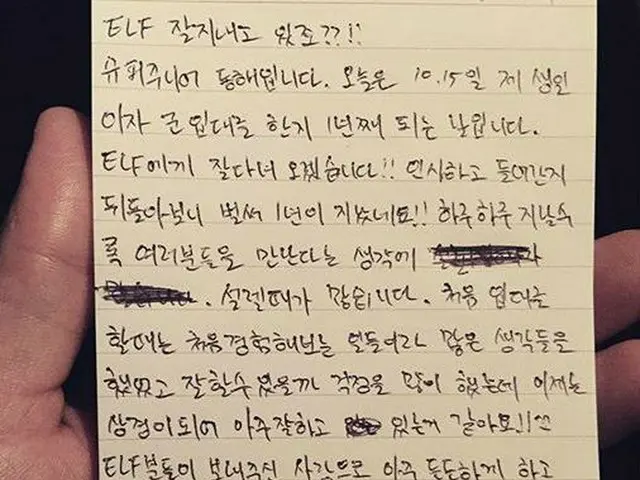 ELF 잘지내고 있죠??!!
슈퍼주니어 동해입니다. 오늘은 10.15일 제 생일
이자 군 입대를 한지 1년째 되는 날입니다.
ELF에게 잘다녀 오겠습니다!! 인사하고 들어간지
뒤돌아보니 벌써 1년이 지났네요!! 하루하루 지날수
록 여러분들을 만난다는 생각에 과
. 설렐때가 많습니다. 처음 입대를
할때는 처음경험해보는 일들이라 많은 생각들을
했었고 잘할수 있을까 걱정을 많이 했는데 이제는
상경이되어 아주잘하고 있는거 같아요!!^^
ELF분들이 보내주신 사랑으로 아주 든든하게 하고